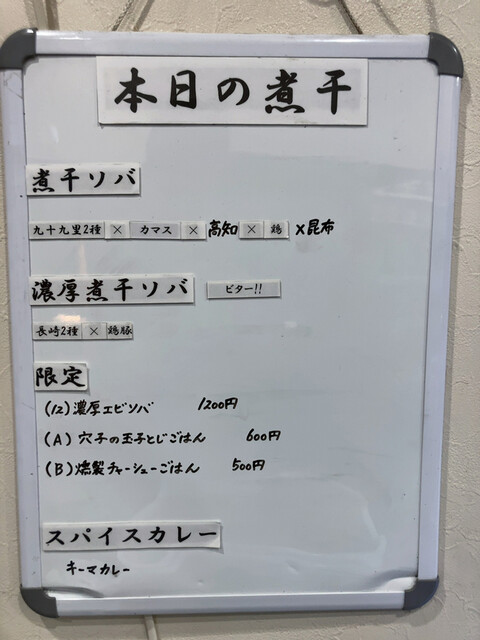 本日の煮干
煮干ソバ
九十九里2種 × カマス × 高知 × 鶏 ×昆布
濃厚煮干ソバ ビター!!
長崎2種 × 鶏豚
限定
(12)濃厚エビソバ 1200円
(A)穴子の玉子とじごはん 600円
(B)燻製チャーシューごはん 500円
スパイスカレー
キーマカレー